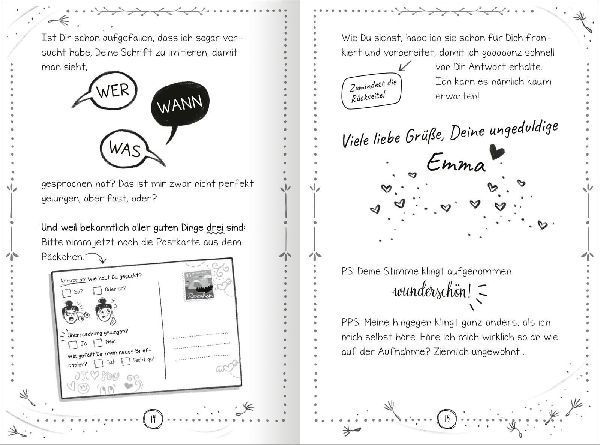 Ist Dir schon aufgefallen, dass ich sogar ver-
sucht habe, Deine Schrift zu imitieren, damit
man sieht,
WER
WANN
WAS
gesprochen hat? Das ist mir zwar nicht perfekt
gelungen, aber fast, oder?
Und weil bekanntlich aller guten Dinge drei sind:
Bitte nimm jetzt noch die Postkarte aus dem
Päckchen.
14
Wie Du siehst, habe ich sie schon für Dich fran-
kiert und vorbereitet, damit ich gooooanz schnell
von Dir Antwort erhalte.
Ich kann es nämlich kaum
erwarten!
Zumindest die
Rückseite!
Viele liebe Grüße, Deine ungeduldige
Emma
PS: Deine Stimme klingt aufgenommen
wunderschön!
PPS: Meine hingegen klingt ganz anders, als ich
mich selbst höre. Höre ich mich wirklich so an wie
auf der Aufnahme? Ziemlich ungewohnt...
15